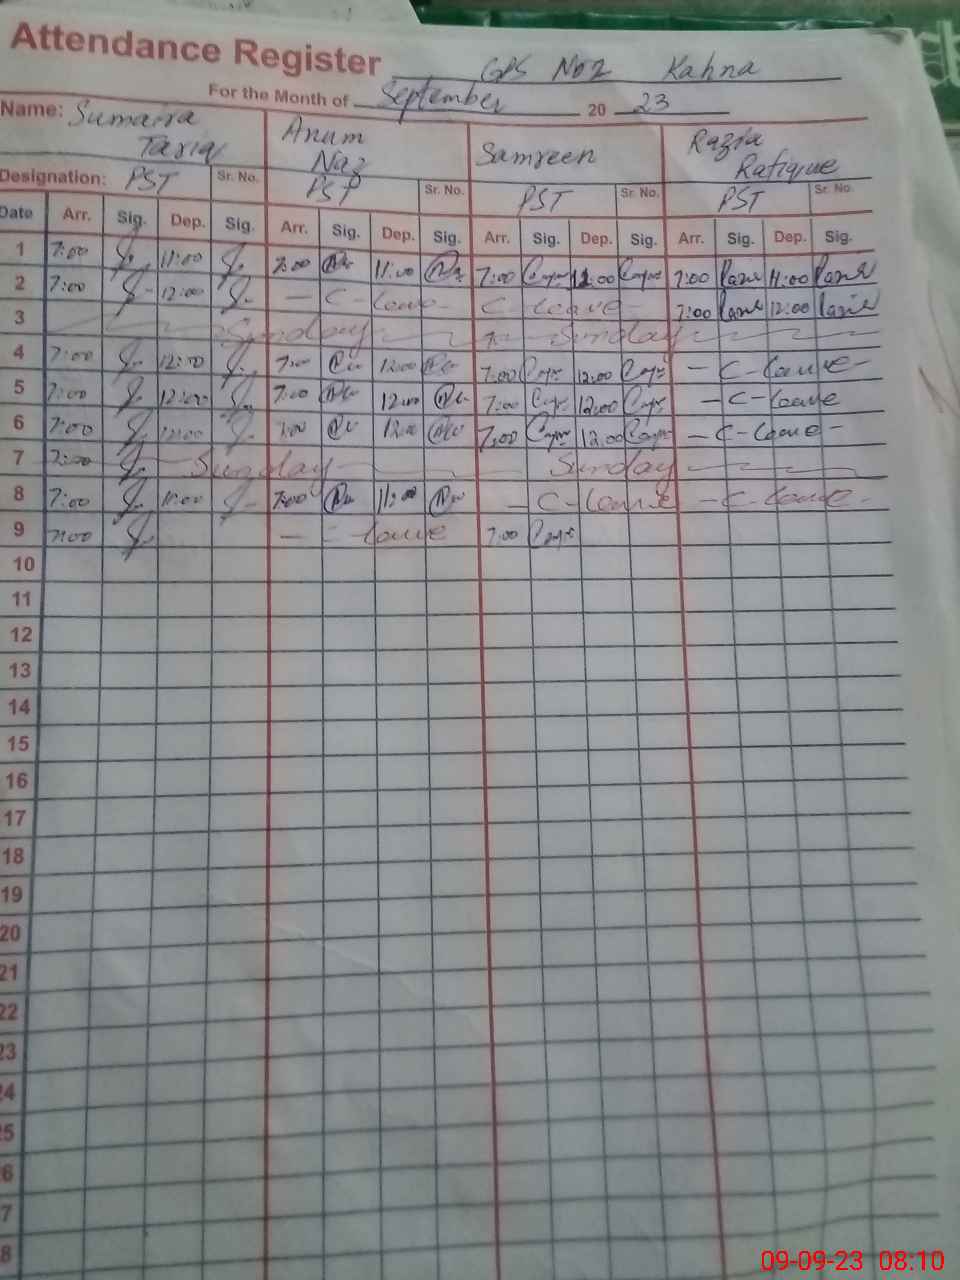 Attendance Register GPS No 2 Kahna
For the Month of September 20 23
Name: Sumaira Tariq Anum Naz Samreen Razia Rafique
Designation: PST Sr. No. PST Sr. No. PST Sr. No. PST Sr. No.
Date Arr. Sig. Dep. Sig. Arr. Sig. Dep. Sig. Arr. Sig. Dep. Sig. Arr. Sig. Dep. Sig.
1 7:00 11:00 7:00 11:00 7:00 7:00 11:00
2 7:00 12:00 - C - leave - C leave - 7:00 12:00
3 Sunday Sunday
4 7:00 12:00 7:00 12:00 7:00 12:00 - C - leave -
5 7:00 12:00 7:00 12:00 7:00 12:00 - C - leave
6 7:00 12:00 7:00 12:00 7:00 12:00 - C - leave -
7 7:00 Sunday Sunday
8 7:00 11:00 7:00 11:00 - C - leave - C - leave -
9 7:00 - C leave 7:00
10
11
12
13
14
15
16
17
18
19
20
21
22
23
24
25
26
7
8
09-09-23 08:10